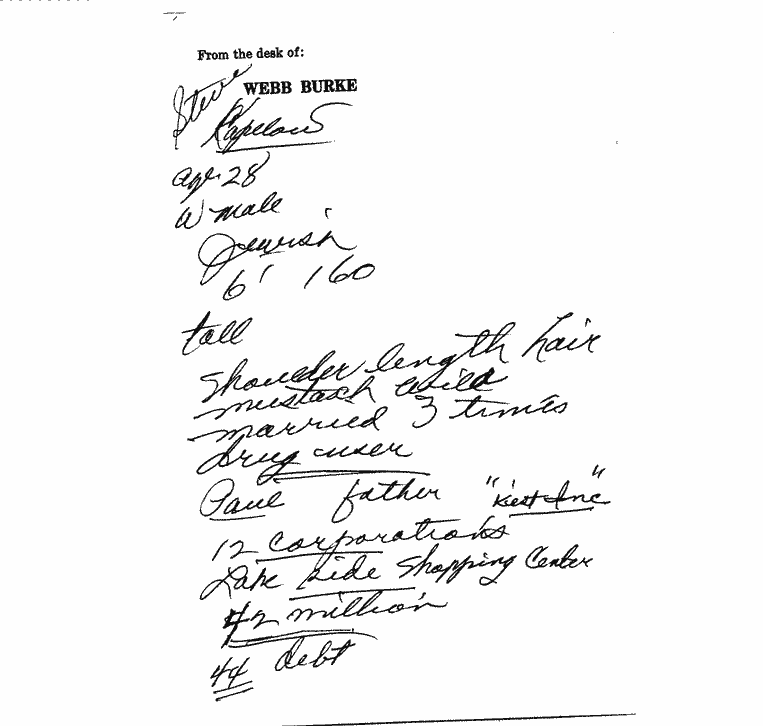 From the desk of:
WEBB BURKE
Steve
Kapelow
age 28
W male
Jewish
6' 160
tall
shoulder length hair
mustach wild
married 3 times
drug user
Paul father "Kest Inc"
12 corporations
Lake Side Shopping Center
42 million
44 debt